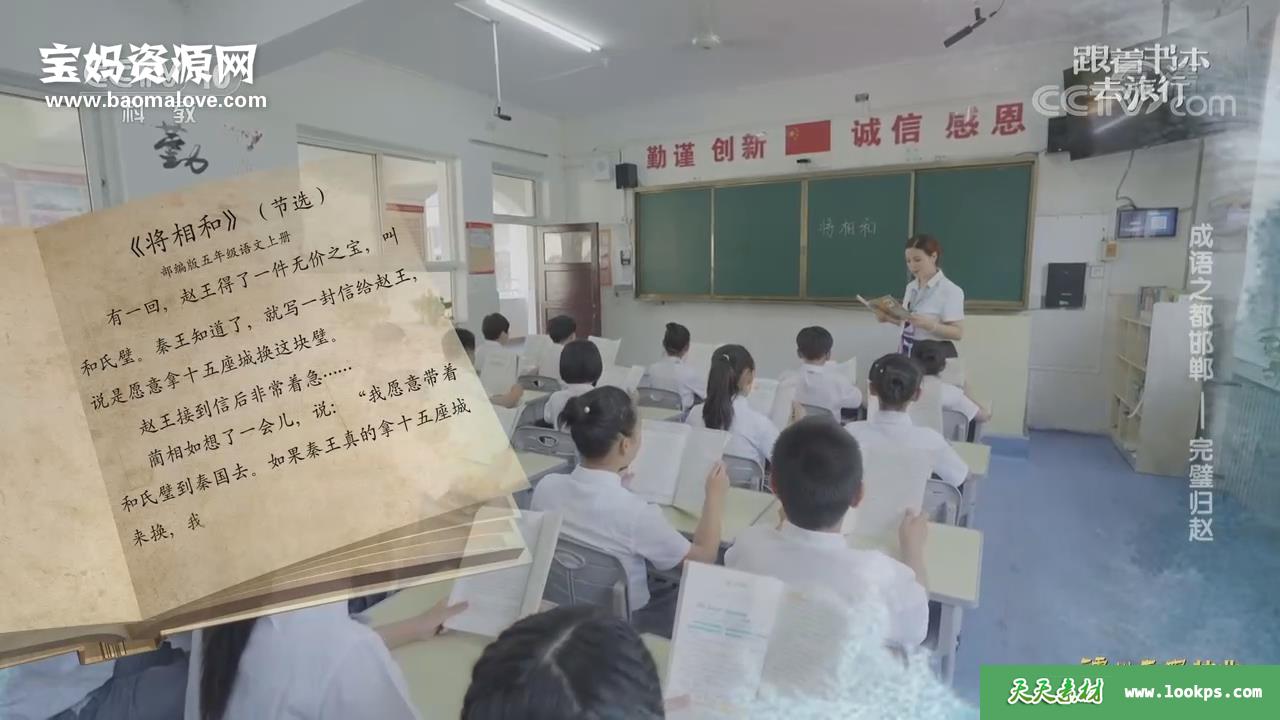 宝妈资源网
www.baomalove.com
科教
跟着书本
去旅行
CCTV.com
勤谨 创新 诚信 感恩
勤
将相和
《将相和》（节选）
部编版五年级语文上册
有一回，赵王得了一件无价之宝，叫
和氏璧。秦王知道了，就写一封信给赵王，
说是愿意拿十五座城换这块璧。
赵王接到信后非常着急……
蔺相如想了一会儿，说：“我愿意带着
和氏璧到秦国去。如果秦王真的拿十五座城
来换，我
成语之都邯郸——完璧归赵
天天素材 www.lookps.com